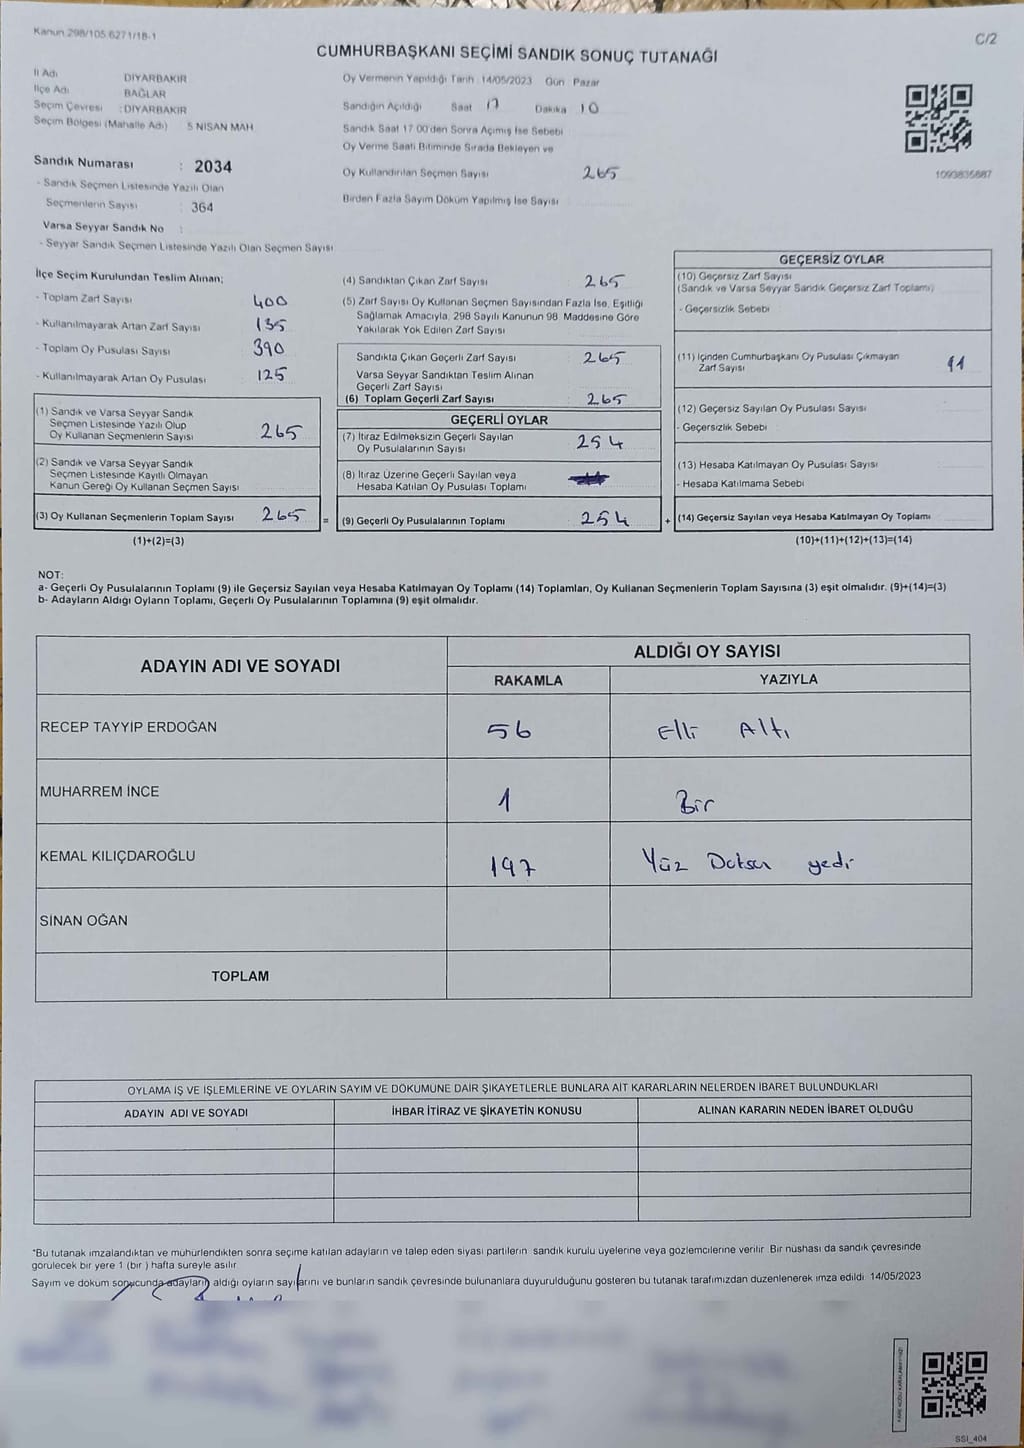 Kanun 298/105 6271/18-1
C/2
CUMHURBAŞKANI SEÇİMİ SANDIK SONUÇ TUTANAĞI
İl Adı DİYARBAKIR
İlçe Adı BAĞLAR
Seçim Çevresi : DİYARBAKIR
Seçim Bölgesi (Mahalle Adı) 5 NİSAN MAH
Oy Vermenin Yapıldığı Tarih 14/05/2023 Gün Pazar
Sandığın Açıldığı Saat 17 Dakika 10
Sandık Saat 17 00'den Sonra Açımış İse Sebebi
Oy Verme Saati Bitiminde Sırada Bekleyen ve
Oy Kullandırılan Seçmen Sayısı 265
Birden Fazla Sayım Döküm Yapılmış İse Sayısı
1093835887
Sandık Numarası : 2034
- Sandık Seçmen Listesinde Yazılı Olan
Seçmenlerin Sayısı 364
Varsa Seyyar Sandık No :
- Seyyar Sandık Seçmen Listesinde Yazılı Olan Seçmen Sayısı
İlçe Seçim Kurulundan Teslim Alınan;
- Toplam Zarf Sayısı 400
- Kullanılmayarak Artan Zarf Sayısı 135
- Toplam Oy Pusulası Sayısı 390
- Kullanılmayarak Artan Oy Pusulası 125
(1) Sandık ve Varsa Seyyar Sandık
Seçmen Listesinde Yazılı Olup
Oy Kullanan Seçmenlerin Sayısı 265
(2) Sandık ve Varsa Seyyar Sandık
Seçmen Listesinde Kayıtlı Olmayan
Kanun Gereği Oy Kullanan Seçmen Sayısı
(3) Oy Kullanan Seçmenlerin Toplam Sayısı 265
(1)+(2)=(3)
=
(4) Sandıktan Çıkan Zarf Sayısı 265
(5) Zarf Sayısı Oy Kullanan Seçmen Sayısından Fazla İse, Eşitliği
Sağlamak Amacıyla, 298 Sayılı Kanunun 98. Maddesine Göre
Yakılarak Yok Edilen Zarf Sayısı
Sandıkta Çıkan Geçerli Zarf Sayısı 265
Varsa Seyyar Sandıktan Teslim Alınan
Geçerli Zarf Sayısı
(6) Toplam Geçerli Zarf Sayısı 265
GEÇERLİ OYLAR
(7) İtiraz Edilmeksizin Geçerli Sayılan
Oy Pusulalarının Sayısı 254
(8) İtiraz Üzerine Geçerli Sayılan veya
Hesaba Katılan Oy Pusulası Toplamı
(9) Geçerli Oy Pusulalarının Toplamı 254
+
GEÇERSİZ OYLAR
(10) Geçersiz Zarf Sayısı
(Sandık ve Varsa Seyyar Sandık Geçersiz Zarf Toplamı)
- Geçersizlik Sebebi
(11) İçinden Cumhurbaşkanı Oy Pusulası Çıkmayan
Zarf Sayısı 11
(12) Geçersiz Sayılan Oy Pusulası Sayısı
- Geçersizlik Sebebi
(13) Hesaba Katılmayan Oy Pusulası Sayısı
- Hesaba Katılmama Sebebi
(14) Geçersiz Sayılan veya Hesaba Katılmayan Oy Toplamı
(10)+(11)+(12)+(13)=(14)
NOT:
a- Geçerli Oy Pusulalarının Toplamı (9) ile Geçersiz Sayılan veya Hesaba Katılmayan Oy Toplamı (14) Toplamları, Oy Kullanan Seçmenlerin Toplam Sayısına (3) eşit olmalıdır. (9)+(14)=(3)
b- Adayların Aldığı Oyların Toplamı, Geçerli Oy Pusulalarının Toplamına (9) eşit olmalıdır.
ADAYIN ADI VE SOYADI
ALDIĞI OY SAYISI
RAKAMLA YAZIYLA
RECEP TAYYİP ERDOĞAN 56 Elli Altı
MUHARREM İNCE 1 Bir
KEMAL KILIÇDAROĞLU 197 Yüz Doksan yedi
SİNAN OĞAN
TOPLAM
OYLAMA İŞ VE İŞLEMLERİNE VE OYLARIN SAYIM VE DÖKÜMÜNE DAİR ŞİKAYETLERLE BUNLARA AİT KARARLARIN NELERDEN İBARET BULUNDUKLARI
ADAYIN ADI VE SOYADI İHBAR İTİRAZ VE ŞİKAYETİN KONUSU ALINAN KARARIN NEDEN İBARET OLDUĞU
*Bu tutanak imzalandıktan ve mühürlendikten sonra seçime katılan adayların ve talep eden siyasi partilerin sandık kurulu üyelerine veya gözlemcilerine verilir. Bir nüshası da sandık çevresinde
görülecek bir yere 1 (bir ) hafta süreyle asılır
Sayım ve döküm sonucunda adayların aldığı oyların sayılarını ve bunların sandık çevresinde bulunanlara duyurulduğunu gösteren bu tutanak tarafımızdan düzenlenerek imza edildi 14/05/2023
SSI_404